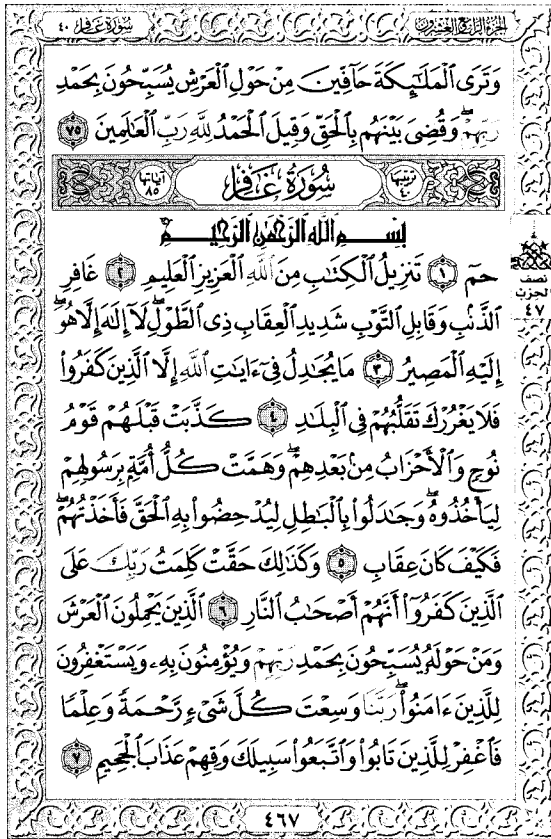 سورة غافر ٤٠
الجزء الرابع والعشرون
وَتَرَى ٱلْمَلَٰٓئِكَةَ حَآفِّينَ مِنْ حَوْلِ ٱلْعَرْشِ يُسَبِّحُونَ بِحَمْدِ
رَبِّهِمْ ۖ وَقُضِىَ بَيْنَهُم بِٱلْحَقِّ وَقِيلَ ٱلْحَمْدُ لِلَّهِ رَبِّ ٱلْعَٰلَمِينَ ٧٥
ترتيبها ٤٠ سُورَةُ غَافِرٍ آياتها ٨٥
بِسْمِ ٱللَّهِ ٱلرَّحْمَٰنِ ٱلرَّحِيمِ
حمٓ ١ تَنزِيلُ ٱلْكِتَٰبِ مِنَ ٱللَّهِ ٱلْعَزِيزِ ٱلْعَلِيمِ ٢ غَافِرِ
ٱلذَّنۢبِ وَقَابِلِ ٱلتَّوْبِ شَدِيدِ ٱلْعِقَابِ ذِى ٱلطَّوْلِ ۖ لَآ إِلَٰهَ إِلَّا هُوَ ۖ
إِلَيْهِ ٱلْمَصِيرُ ٣ مَا يُجَٰدِلُ فِىٓ ءَايَٰتِ ٱللَّهِ إِلَّا ٱلَّذِينَ كَفَرُوا۟
فَلَا يَغْرُرْكَ تَقَلُّبُهُمْ فِى ٱلْبِلَٰدِ ٤ كَذَّبَتْ قَبْلَهُمْ قَوْمُ
نُوحٍ وَٱلْأَحْزَابُ مِنۢ بَعْدِهِمْ ۖ وَهَمَّتْ كُلُّ أُمَّةٍۭ بِرَسُولِهِمْ
لِيَأْخُذُوهُ ۖ وَجَٰدَلُوا۟ بِٱلْبَٰطِلِ لِيُدْحِضُوا۟ بِهِ ٱلْحَقَّ فَأَخَذْتُهُمْ ۖ
فَكَيْفَ كَانَ عِقَابِ ٥ وَكَذَٰلِكَ حَقَّتْ كَلِمَتُ رَبِّكَ عَلَى
ٱلَّذِينَ كَفَرُوٓا۟ أَنَّهُمْ أَصْحَٰبُ ٱلنَّارِ ٦ ٱلَّذِينَ يَحْمِلُونَ ٱلْعَرْشَ
وَمَنْ حَوْلَهُۥ يُسَبِّحُونَ بِحَمْدِ رَبِّهِمْ وَيُؤْمِنُونَ بِهِۦ وَيَسْتَغْفِرُونَ
لِلَّذِينَ ءَامَنُوا۟ رَبَّنَا وَسِعْتَ كُلَّ شَىْءٍ رَّحْمَةً وَعِلْمًا
فَٱغْفِرْ لِلَّذِينَ تَابُوا۟ وَٱتَّبَعُوا۟ سَبِيلَكَ وَقِهِمْ عَذَابَ ٱلْجَحِيمِ ٧
نصف
الحزب
٤٧
٤٦٧